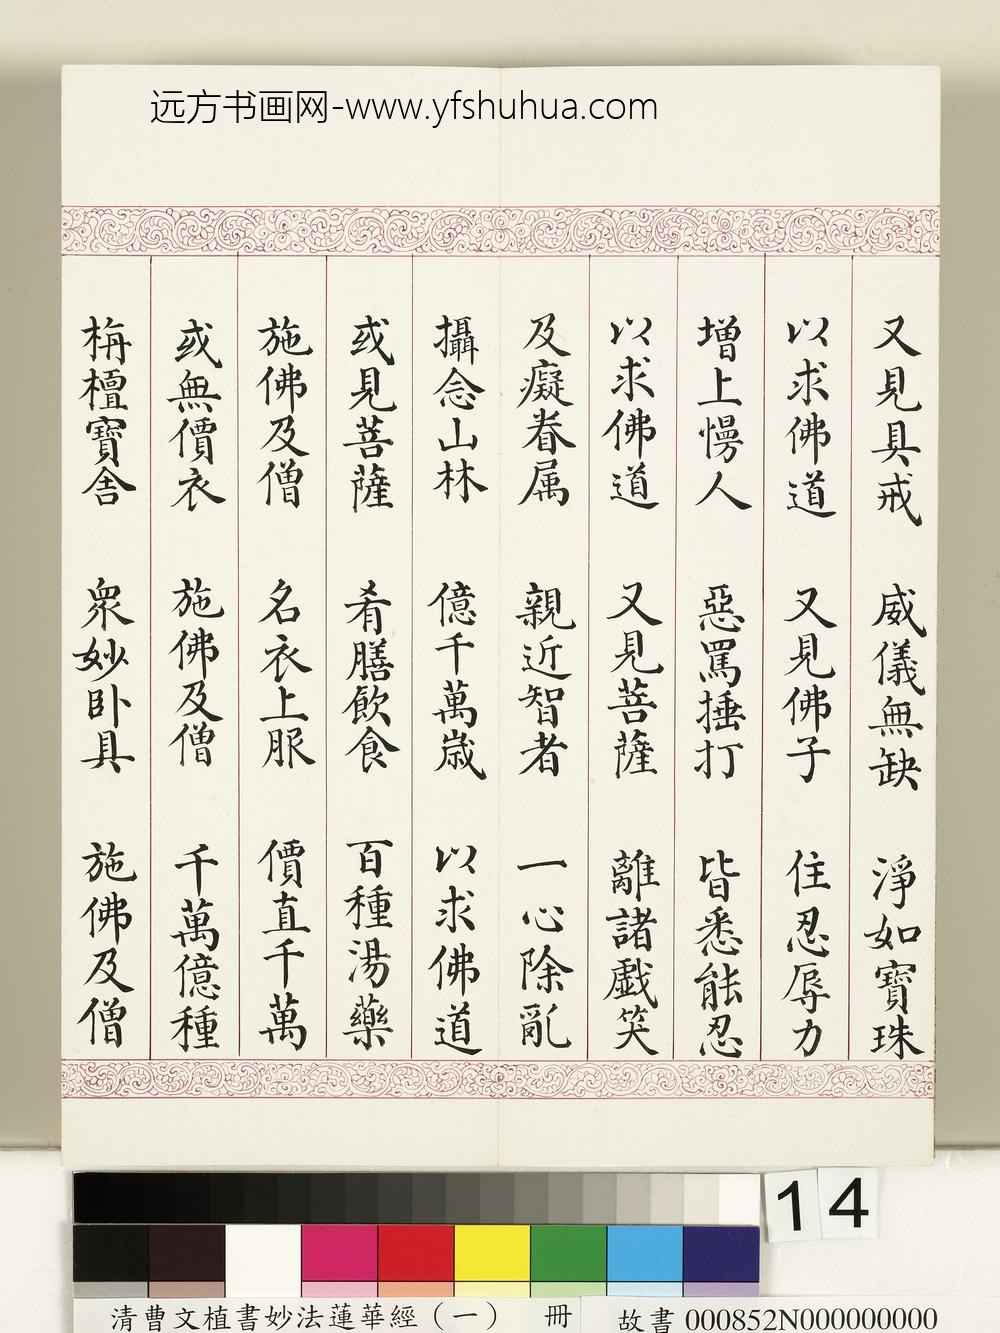 远方书画网-www.yfshuhua.com
又見具戒 威儀無缺 淨如寶珠
以求佛道 又見佛子 住忍辱力
增上慢人 惡罵捶打 皆悉能忍
以求佛道 又見菩薩 離諸戲笑
及癡眷属 親近智者 一心除亂
攝念山林 億千萬歲 以求佛道
或見菩薩 肴膳飲食 百種湯藥
施佛及僧 名衣上服 價直千萬
或無價衣 施佛及僧 千萬億種
栴檀寶舍 眾妙卧具 施佛及僧
14
清曹文植書妙法蓮華經（一） 冊 故書 000852N000000000